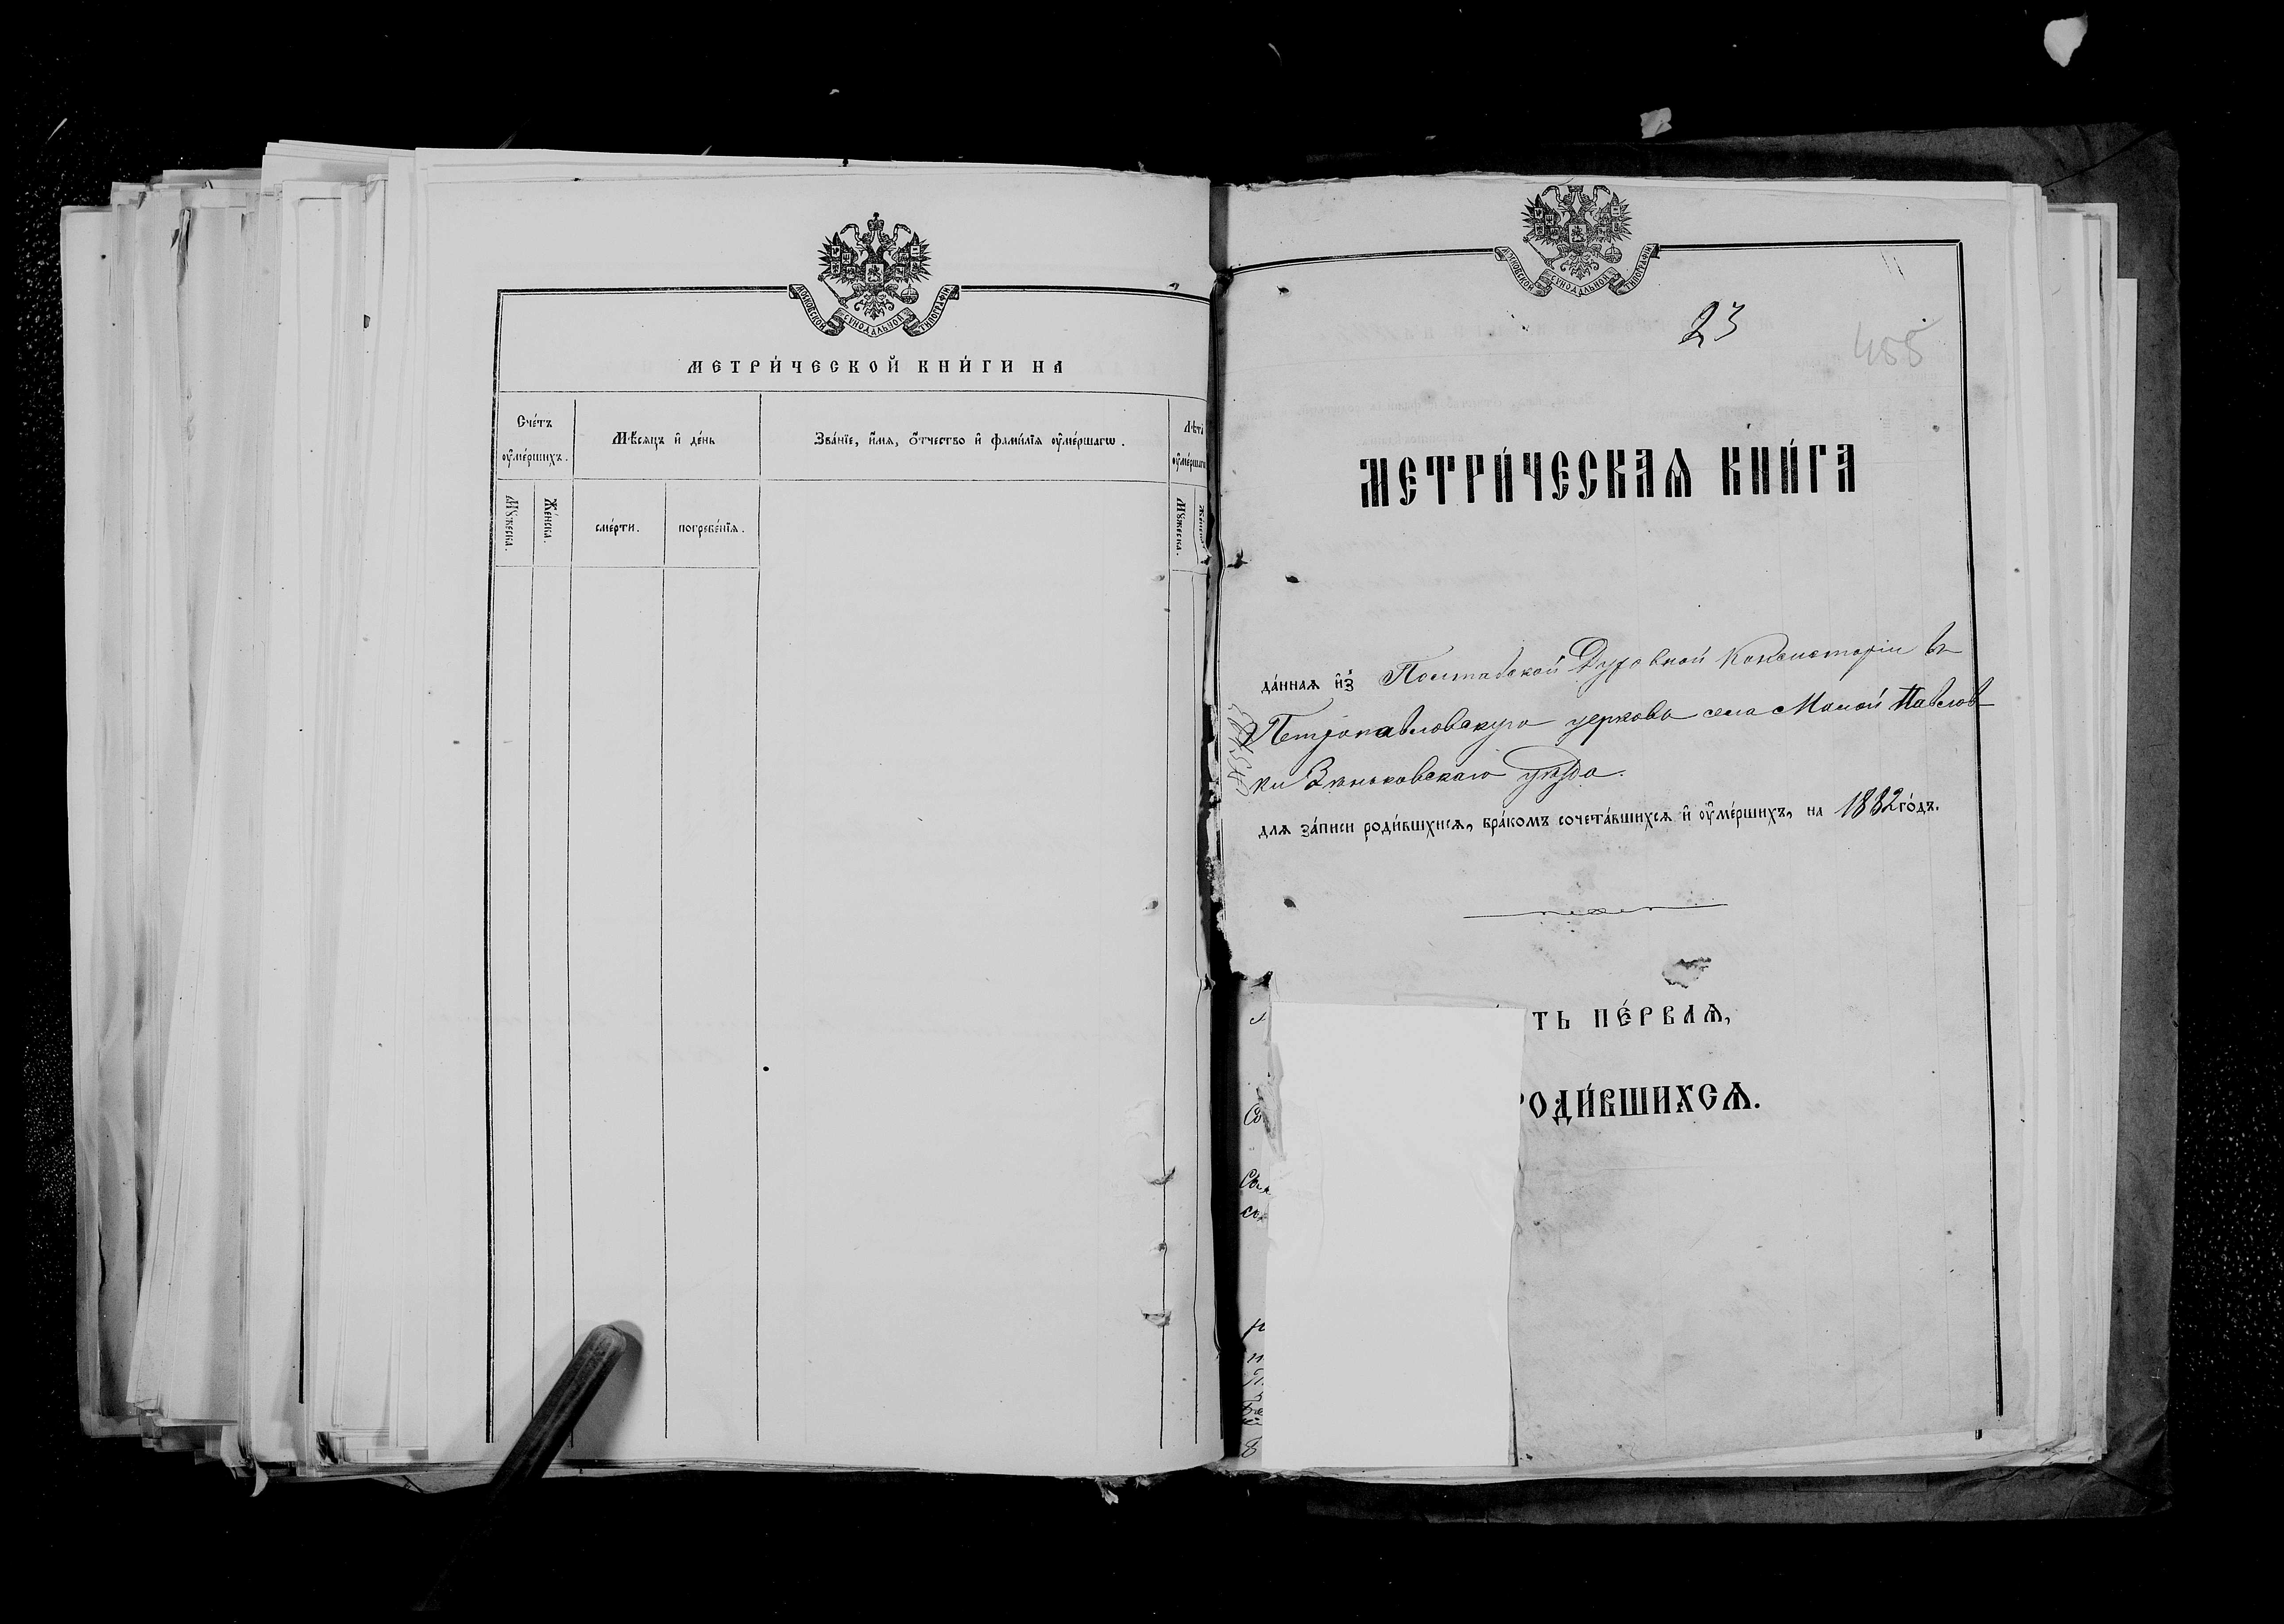 МОСКОВСКОЙ СѴНОДАЛЬНОЙ ТИПОГРАФІИ
МЕТРИ́ЧЕСКОЙ КНИ́ГИ НА
Сче́тъ ᲂу҆ме́ршихъ.
Мѣ́сяцъ и҆ де́нь
Зва́нїе, и҆́мя, ѻ҆́тчество и҆ фами́лїя ᲂу҆ме́ршагѡ.
Лѣта̀ ᲂу҆ме́ршагѡ
Мꙋ́жеска.
Же́нска.
сме́рти.
погребе́нїя.
Мꙋ́жеска.
Же́нска
МОСКОВСКОЙ СѴНОДАЛЬНОЙ ТИПОГРАФІИ
23
455
МЕТРИ́ЧЕСКАѦ КНИ́ГА
да́нная и҆з̾ Полтавской Духовной Консисторіи въ
Петропавловскую церковь села Малой Павлов-
ки Зѣньковскаго уѣзда.
для за́писи роди́вшхися, бра́комъ сочета́вшихся и҆ ᲂу҆ме́ршихъ, на 1882 го́дъ.
ТЬ ПЕ́РВАѦ,
РОДИ́ВШИХСѦ.